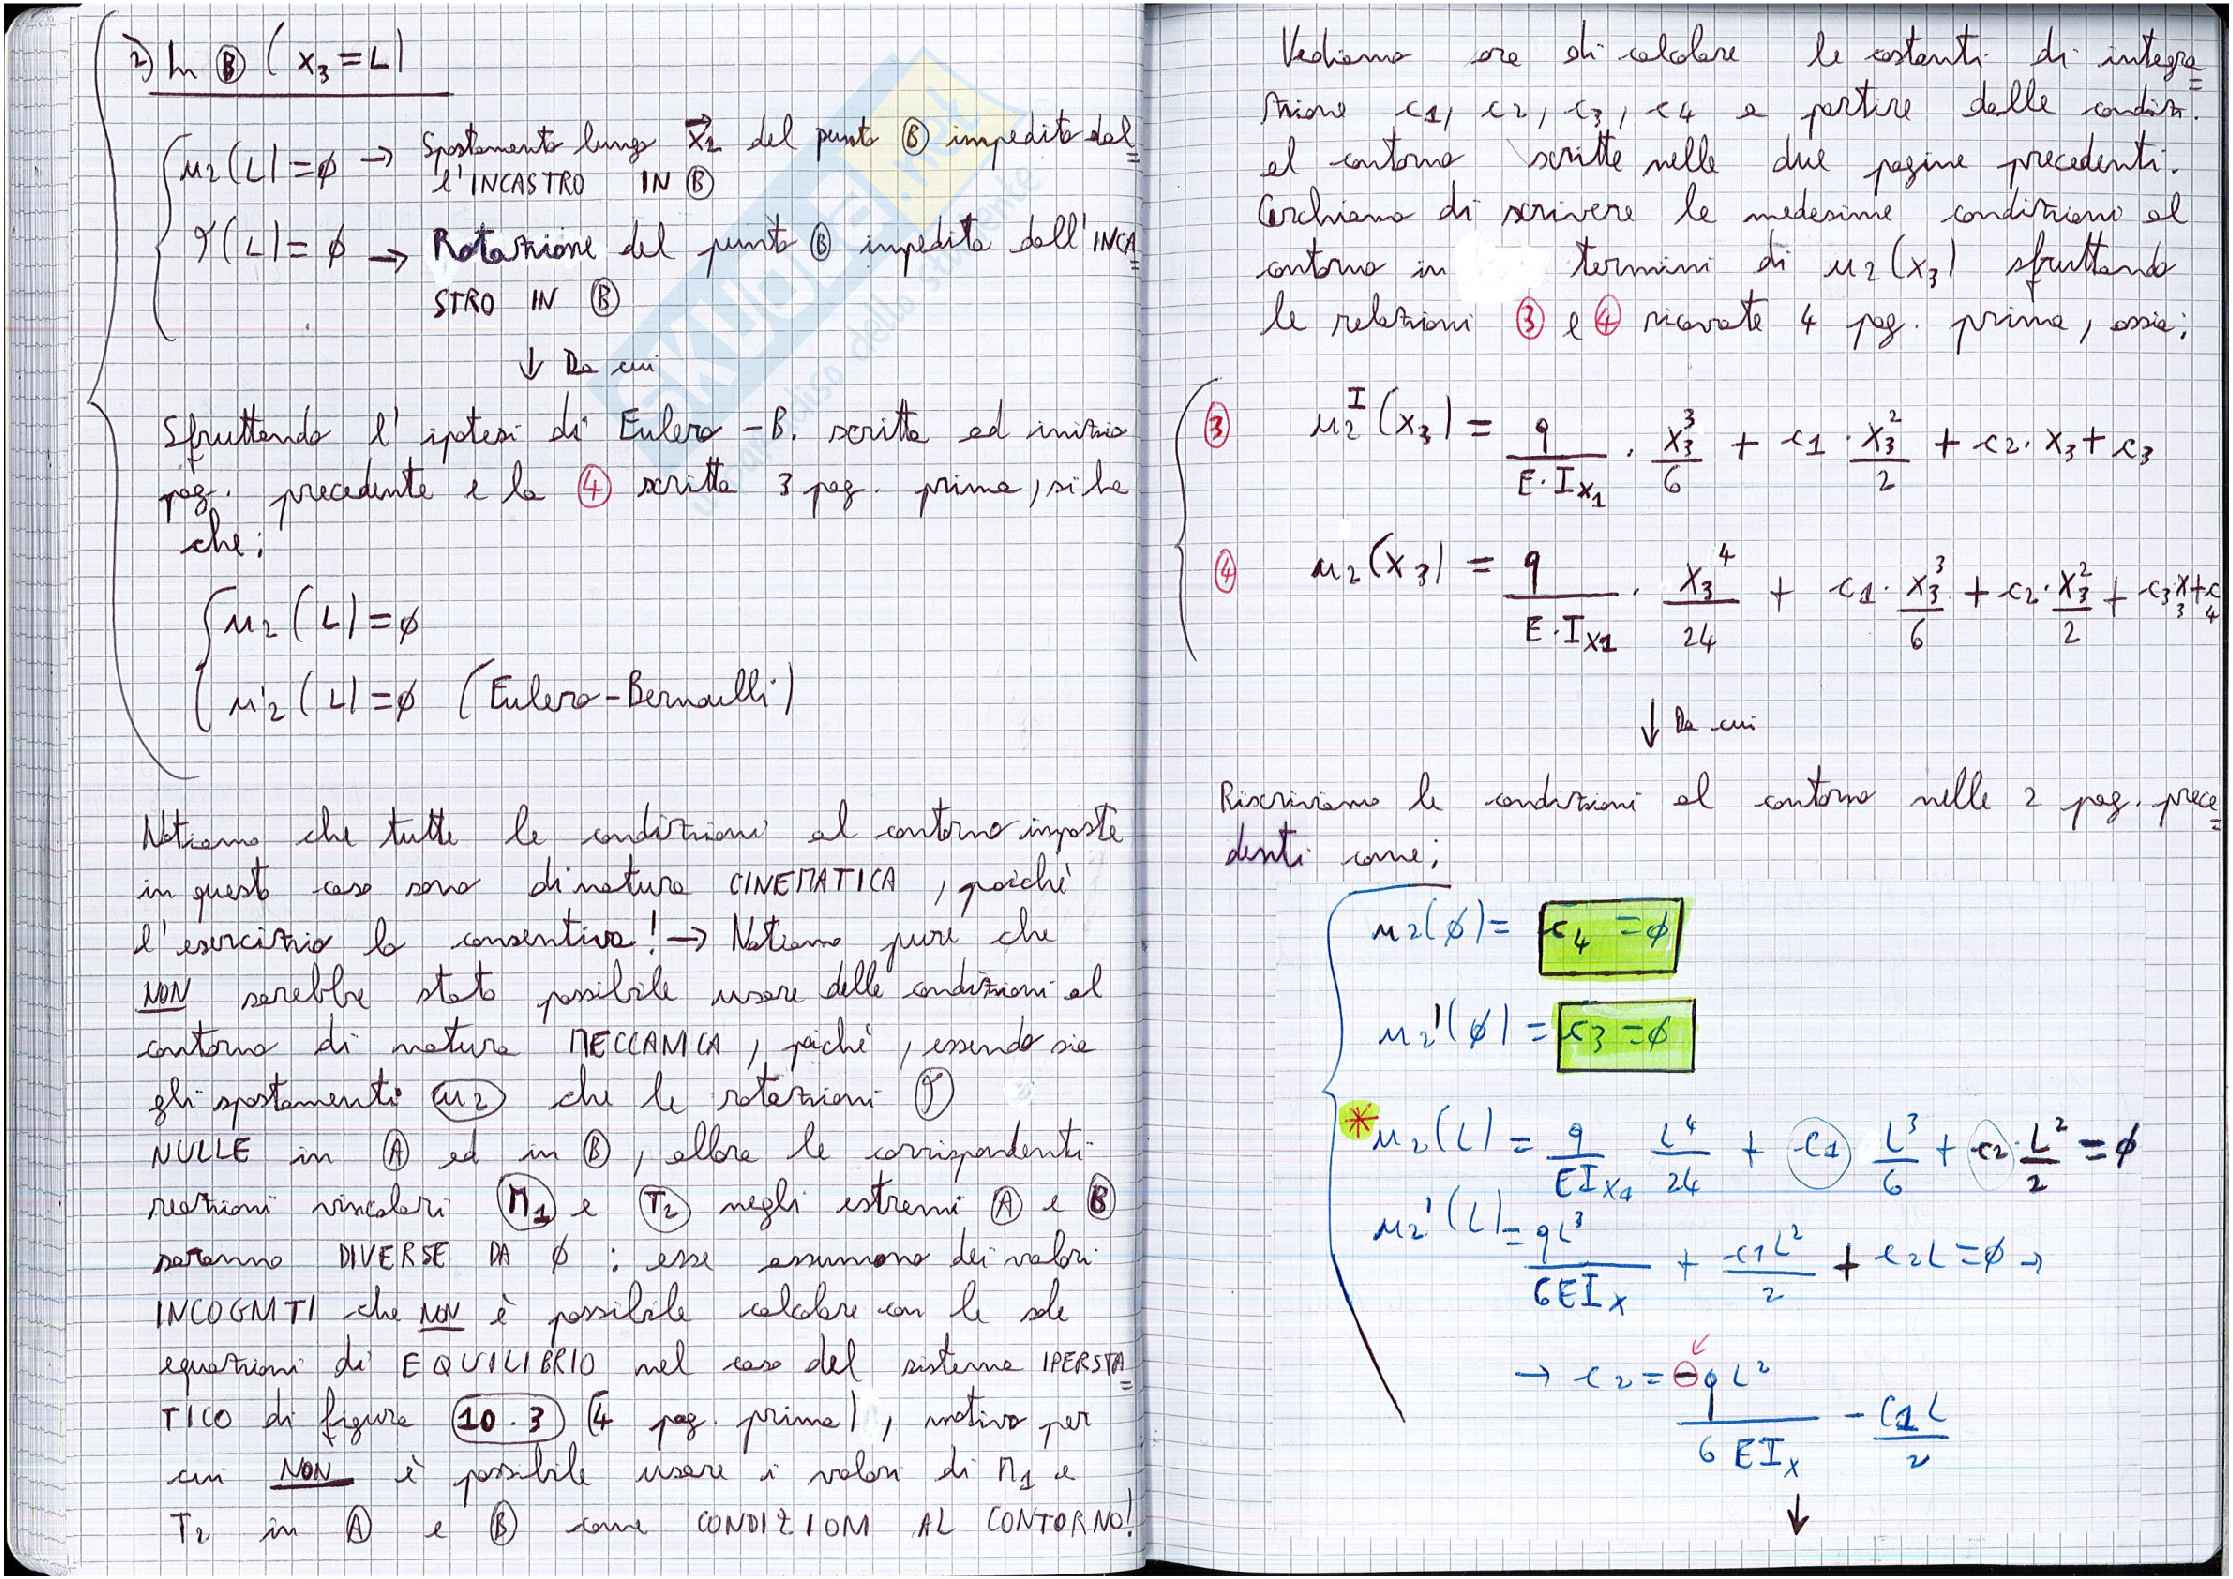 2) In Ⓑ (x₃ = L)
u₂(L) = ϕ → Spostamento lungo x⃗₂ del punto Ⓑ impedito dal=
l'INCASTRO IN Ⓑ
φ(L) = ϕ → Rotazione del punto Ⓑ impedita dall'INCA=
STRO IN Ⓑ
↓ Da cui
Sfruttando l'ipotesi di Eulero-B. scritta ad inizio
pag. precedente e la ④ scritta 3 pag. prima, si ha
che:
u₂(L) = ϕ
u₂'(L) = ϕ (Eulero-Bernoulli)
Notiamo che tutte le condizioni al contorno imposte
in questo caso sono di natura CINEMATICA, poiché
l'esercizio lo consentiva! → Notiamo pure che
NON sarebbe stato possibile usare delle condizioni al
contorno di natura MECCANICA, poiché, essendo sia
gli spostamenti u₂ che le rotazioni φ
NULLE in Ⓐ ed in Ⓑ, allora le corrispondenti
reazioni vincolari M₁ e T₂ negli estremi Ⓐ e Ⓑ
saranno DIVERSE DA ϕ : esse assumono dei valori
INCOGNITI che NON è possibile calcolare con le sole
equazioni di EQUILIBRIO nel caso del sistema IPERSTA=
TICO di figura 10.3 (4 pag. prima), motivo per
cui NON è possibile usare i valori di M₁ e
T₂ in Ⓐ e Ⓑ come CONDIZIONI AL CONTORNO!
Vediamo ora di calcolare le costanti di integra=
zione c1, c2, c3, c4 a partire dalle condiz.
al contorno scritte nelle due pagine precedenti.
Cerchiamo di scrivere le medesime condizioni al
contorno in termini di u₂(x₃) sfruttando
le relazioni ③ e ④ ricavate 4 pag. prima, ossia:
③ u₂ᴵ(x₃) = q/(E·Ix₁) · x₃³/6 + c1 · x₃²/2 + c2 · x₃ + c3
④ u₂(x₃) = q/(E·Ix₁) · x₃⁴/24 + c1 · x₃³/6 + c2 · x₃²/2 + c3x₃ + c4
↓ Da cui
Riscriviamo le condizioni al contorno nelle 2 pag. prece=
denti come:
u₂(ϕ) = c4 = ϕ
u₂'(ϕ) = c3 = ϕ
* u₂(L) = q/(EIx₁) L⁴/24 + c1 L³/6 + c2 · L²/2 = ϕ
u₂'(L) = qL³/(6EIx) + c1L²/2 + c2L = ϕ →
→ c2 = −qL²/(6EIx) − c1L/2
↓